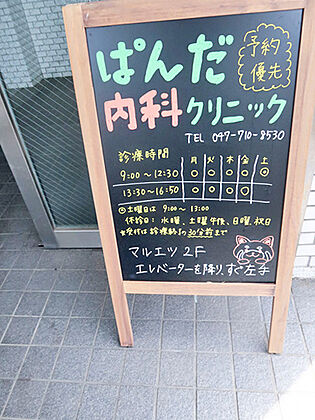 予約
優先
ぱんだ
内科クリニック
TEL 047-710-8530
診療時間 月 火 木 金 土
9:00～12:30 ○ ○ ○ ○ ◎
13:30～16:50 ○ ○ ○ ○
◎土曜日は 9:00～13:00
休診日: 水曜、土曜午後、日曜、祝日
※受付は診療終了の30分前まで
マルエツ 2F
エレベーターを降り、すぐ左手